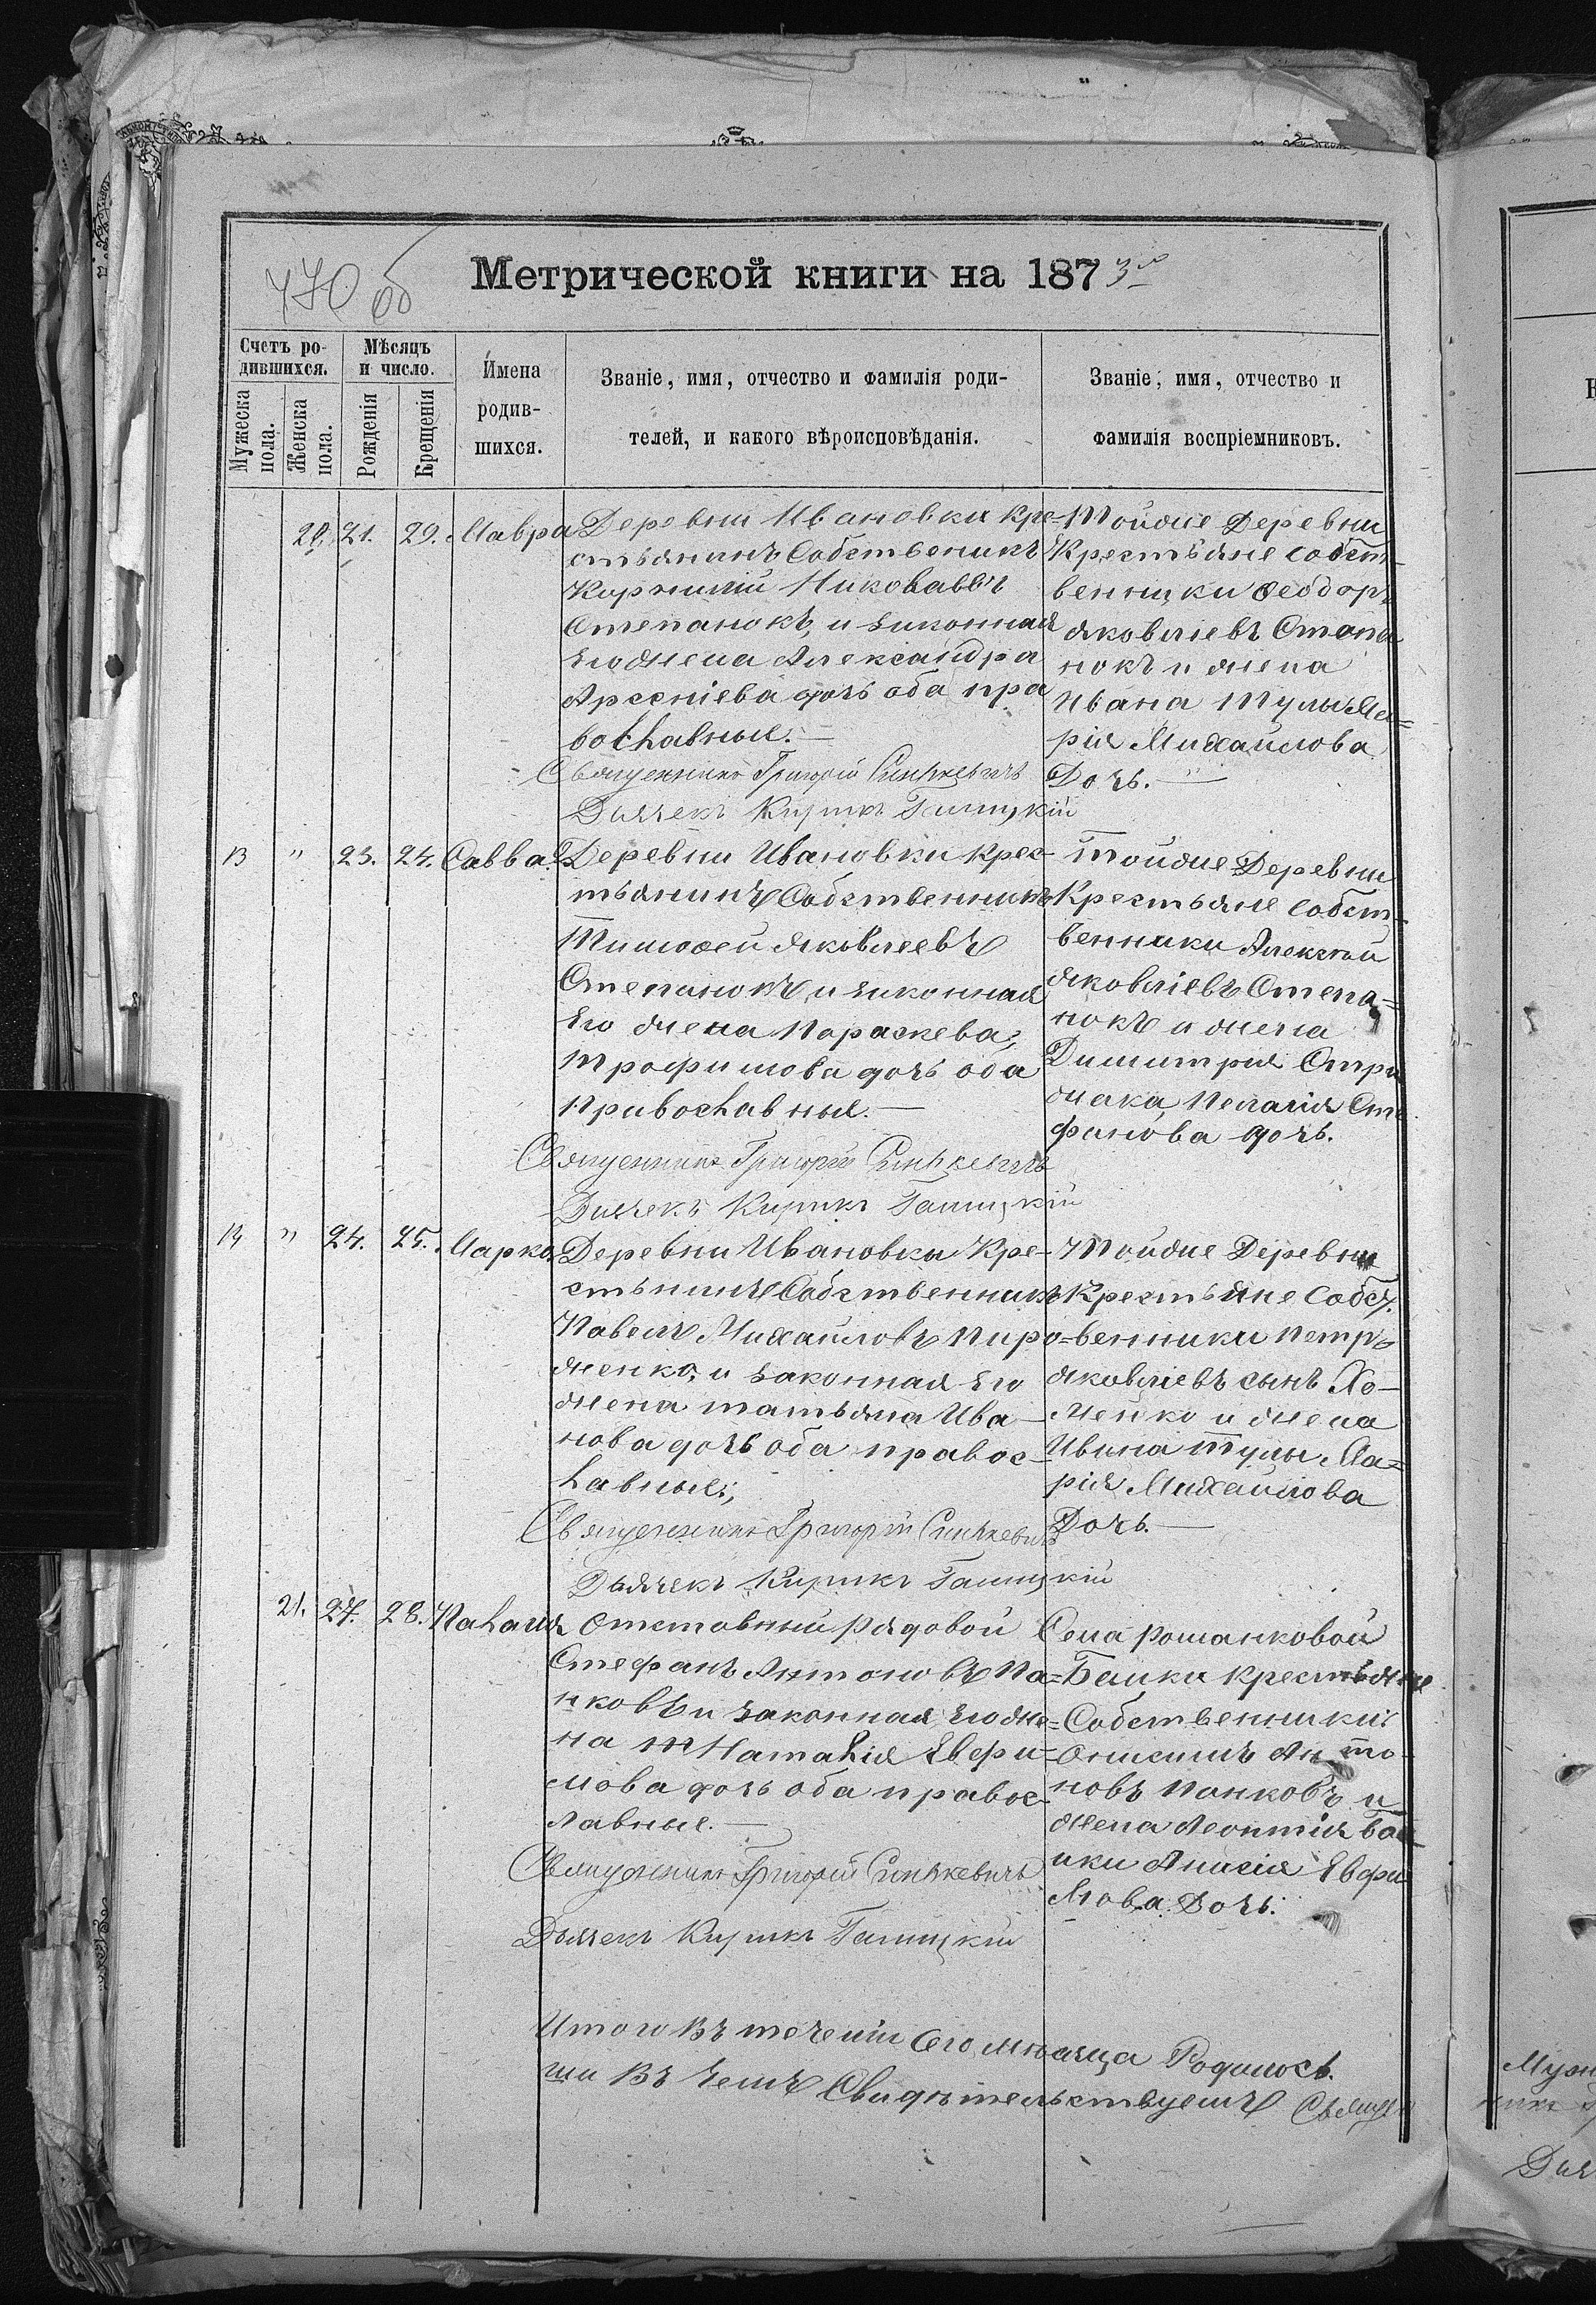 470 об
Метрической книги на 1873го
Счетъ ро-
дившихся.
Мѣсяцъ
и число.
Имена
родив-
шихся.
Званіе, имя, отчество и фамилія роди-
телей, и какого вѣроисповѣданія.
Званіе, имя, отчество и
фамилія воспріемниковъ.
Мужеска
пола.
Женска
пола.
Рожденія
Крещенія
20. 21. 29. Мавра
Деревни Ивановки Кре-
стьянинъ Собственикъ
Степанокъ, и законная
Его жена Александра
Арсеніева дочь оба пра
вославные. —
Священникъ Григорій Синькевичъ
Дьячекъ Кирикъ Галицкій
Тойже Деревни
Крестьяне собст-
венники Ѳеодоръ
Яковлевъ Степа
нокъ и жена
Ивана Тулы Ма=
рія Михайлова
Дочь. —
13 " 23. 24. Савва.
Деревни Ивановки Крес-
тьянинъ Собственникъ
Тимоѳей Яковлевъ
Степанокъ, и законная
Его жена Параскева,
Трофимова дочь оба
православные. —
Священникъ Григорій Синькевичъ
Дьячекъ Кирикъ Галицкій
Тойже Деревни
Крестьяне собст-
венники Алексѣй
Яковлевъ Степа=
нокъ и жена
Димитрія Стри
жака Пелагія Сте
фанова дочь.
14 " 24. 25. Марко.
Деревни Ивановки Кре-
стьнинъ Собственникъ
Павелъ Михайловъ Пиро=
женко, и законная Его
жена Татьяна Ива-
нова дочь оба правос-
лавные;
Священникъ Григорій Синькевичъ
Дьячекъ Кирикъ Галицкій
Тойже Деревни
Крестьяне Собст.
венники Петръ
Яковлевъ сынъ Хо-
менко и жена
Ивана Тулы Ма=
рія Михайлова
Дочь. —
21. 27. 28.
Отставный Рядовой
Стефанъ Антоновъ Па=
нковъ и законная Его же=
на Наталія Евфи=
мова дочь оба правос-
лавные. —
Священникъ Григорій Синькевичъ
Дьячекъ Кирикъ Галицкій
Села Романковой
Балки Крестьяне
Собственники
Онисимъ Анто-
новъ Панковъ и
жена Леонтія Бал
ики Анисія Евфи
мова Дочь.
Итого Въ теченіи Сего мѣсяца Родилось.
ши Въ чемъ Свидѣтельствуемъ Священ